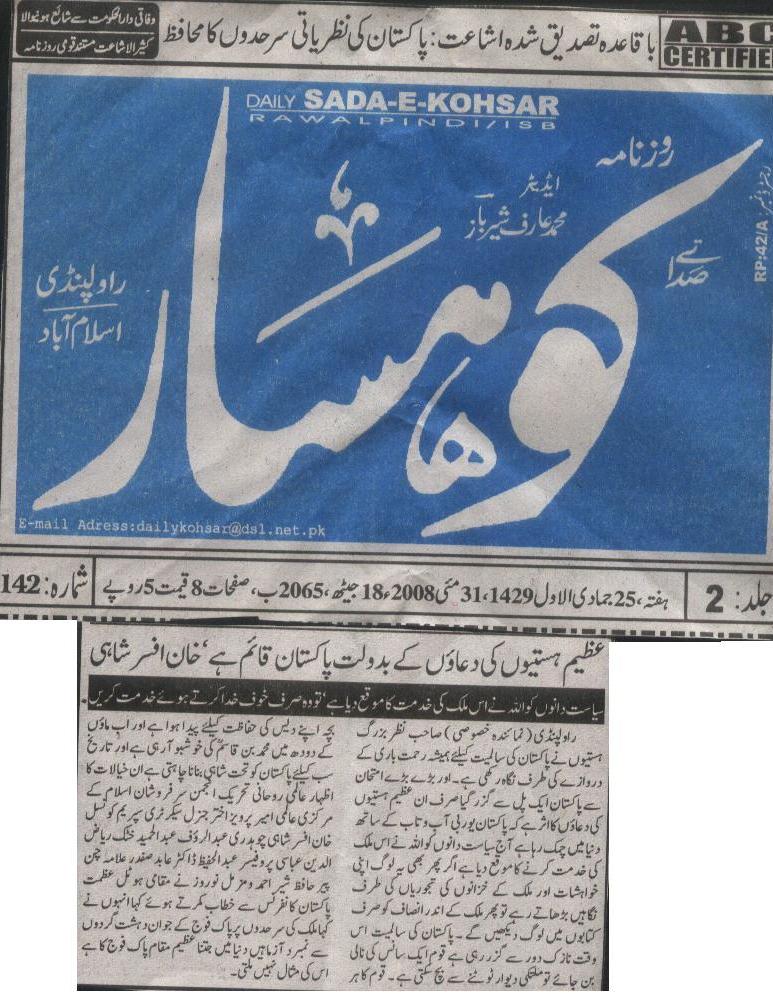 وفاقی دارالحکومت سے شائع ہونیوالا
کثیر الاشاعت مستند قومی روزنامہ
باقاعدہ تصدیق شدہ اشاعت: پاکستان کی نظریاتی سرحدوں کا محافظ
ABC
CERTIFIED
DAILY SADA-E-KOHSAR
RAWALPINDI/ISB
روزنامہ
ایڈیٹر
محمد عارف شیرباز
صدائے
کوہسار
راولپنڈی
اسلام آباد
رجسٹرڈ نمبر: RP:42/A
E-mail Adress:dailykohsar@dsl.net.pk
جلد: 2
ہفتہ، 25 جمادی الاول 1429، 31 مئی 2008ء 18 جیٹھ، 2065 ب، صفحات 8 قیمت 5 روپے
شمارہ: 142
عظیم ہستیوں کی دعاؤں کے بدولت پاکستان قائم ہے، خان افسر شاہی
سیاست دانوں کو اللہ نے اس ملک کی خدمت کا موقع دیا ہے، تو وہ صرف خوف خدا کرتے ہوئے خدمت کریں۔
راولپنڈی (نمائندہ خصوصی) صاحب نظر بزرگ
ہستیوں نے پاکستان کی سالمیت کیلئے ہمیشہ رحمت باری کے
دروازے کی طرف نگاہ رکھی ہے۔ اور بڑے بڑے امتحان
سے پاکستان ایک پل سے گزر گیا صرف ان عظیم ہستیوں
کی دعاؤں کا اثر ہے کہ پاکستان پوری آب و تاب کے ساتھ
دنیا میں چمک رہا ہے آج سیاست دانوں کو اللہ نے اس ملک
کی خدمت کرنے کا موقع دیا ہے اگر پھر بھی یہ لوگ اپنی
خواہشات اور ملک کے خزانوں کی تجوریاں کی طرف
نگاہیں بڑھاتے رہے تو پھر ملک کے اندر انصاف کو صرف
کتابوں میں لوگ دیکھیں گے۔ پاکستان کی سالمیت اس
وقت نازک دور سے گزر رہی ہے قوم ایک سانس کی نالی
بن جائے تو ملکی دیوار ٹوٹنے سے بچ سکتی ہے۔ قوم کا ہر
بچہ اپنے دیس کی حفاظت کیلئے پیدا ہوا ہے اور اب ماؤں
کے دودھ میں محمد بن قاسم کی خوشبو آ رہی ہے اور تاریخ
سب کیلئے پاکستان کو تحت شاہی بنانا چاہتی ہے ان خیالات کا
اظہار عالمی روحانی تحریک انجمن سرفروشان اسلام کے
مرکزی عالمی امیر پرویز اختر جنرل سیکرٹری سپریم کونسل
خان افسر شاہی چوہدری عبدالرؤف عبدالحمید خٹک ریاض
الدین عباسی پروفیسر عبدالحفیظ ڈاکٹر عابد صفدر علامہ چمن
پیر حافظ شیر احمد و مزمل نوروز نے مقامی ہوٹل عظمت
پاکستان کانفرنس سے خطاب کرتے ہوئے کہا انہوں نے
کہا ملک کی سرحدوں پر پاک فوج کے جوان دہشت گردوں
سے نمبرد آزما ہیں دنیا میں جتنا عظیم مقام پاک فوج کا ہے
اس کی مثال نہیں ملتی۔